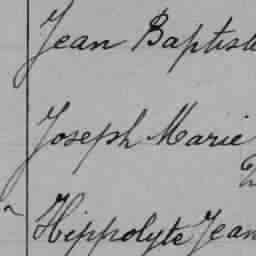 Jean Baptiste
Joseph Marie
Hippolyte Jean